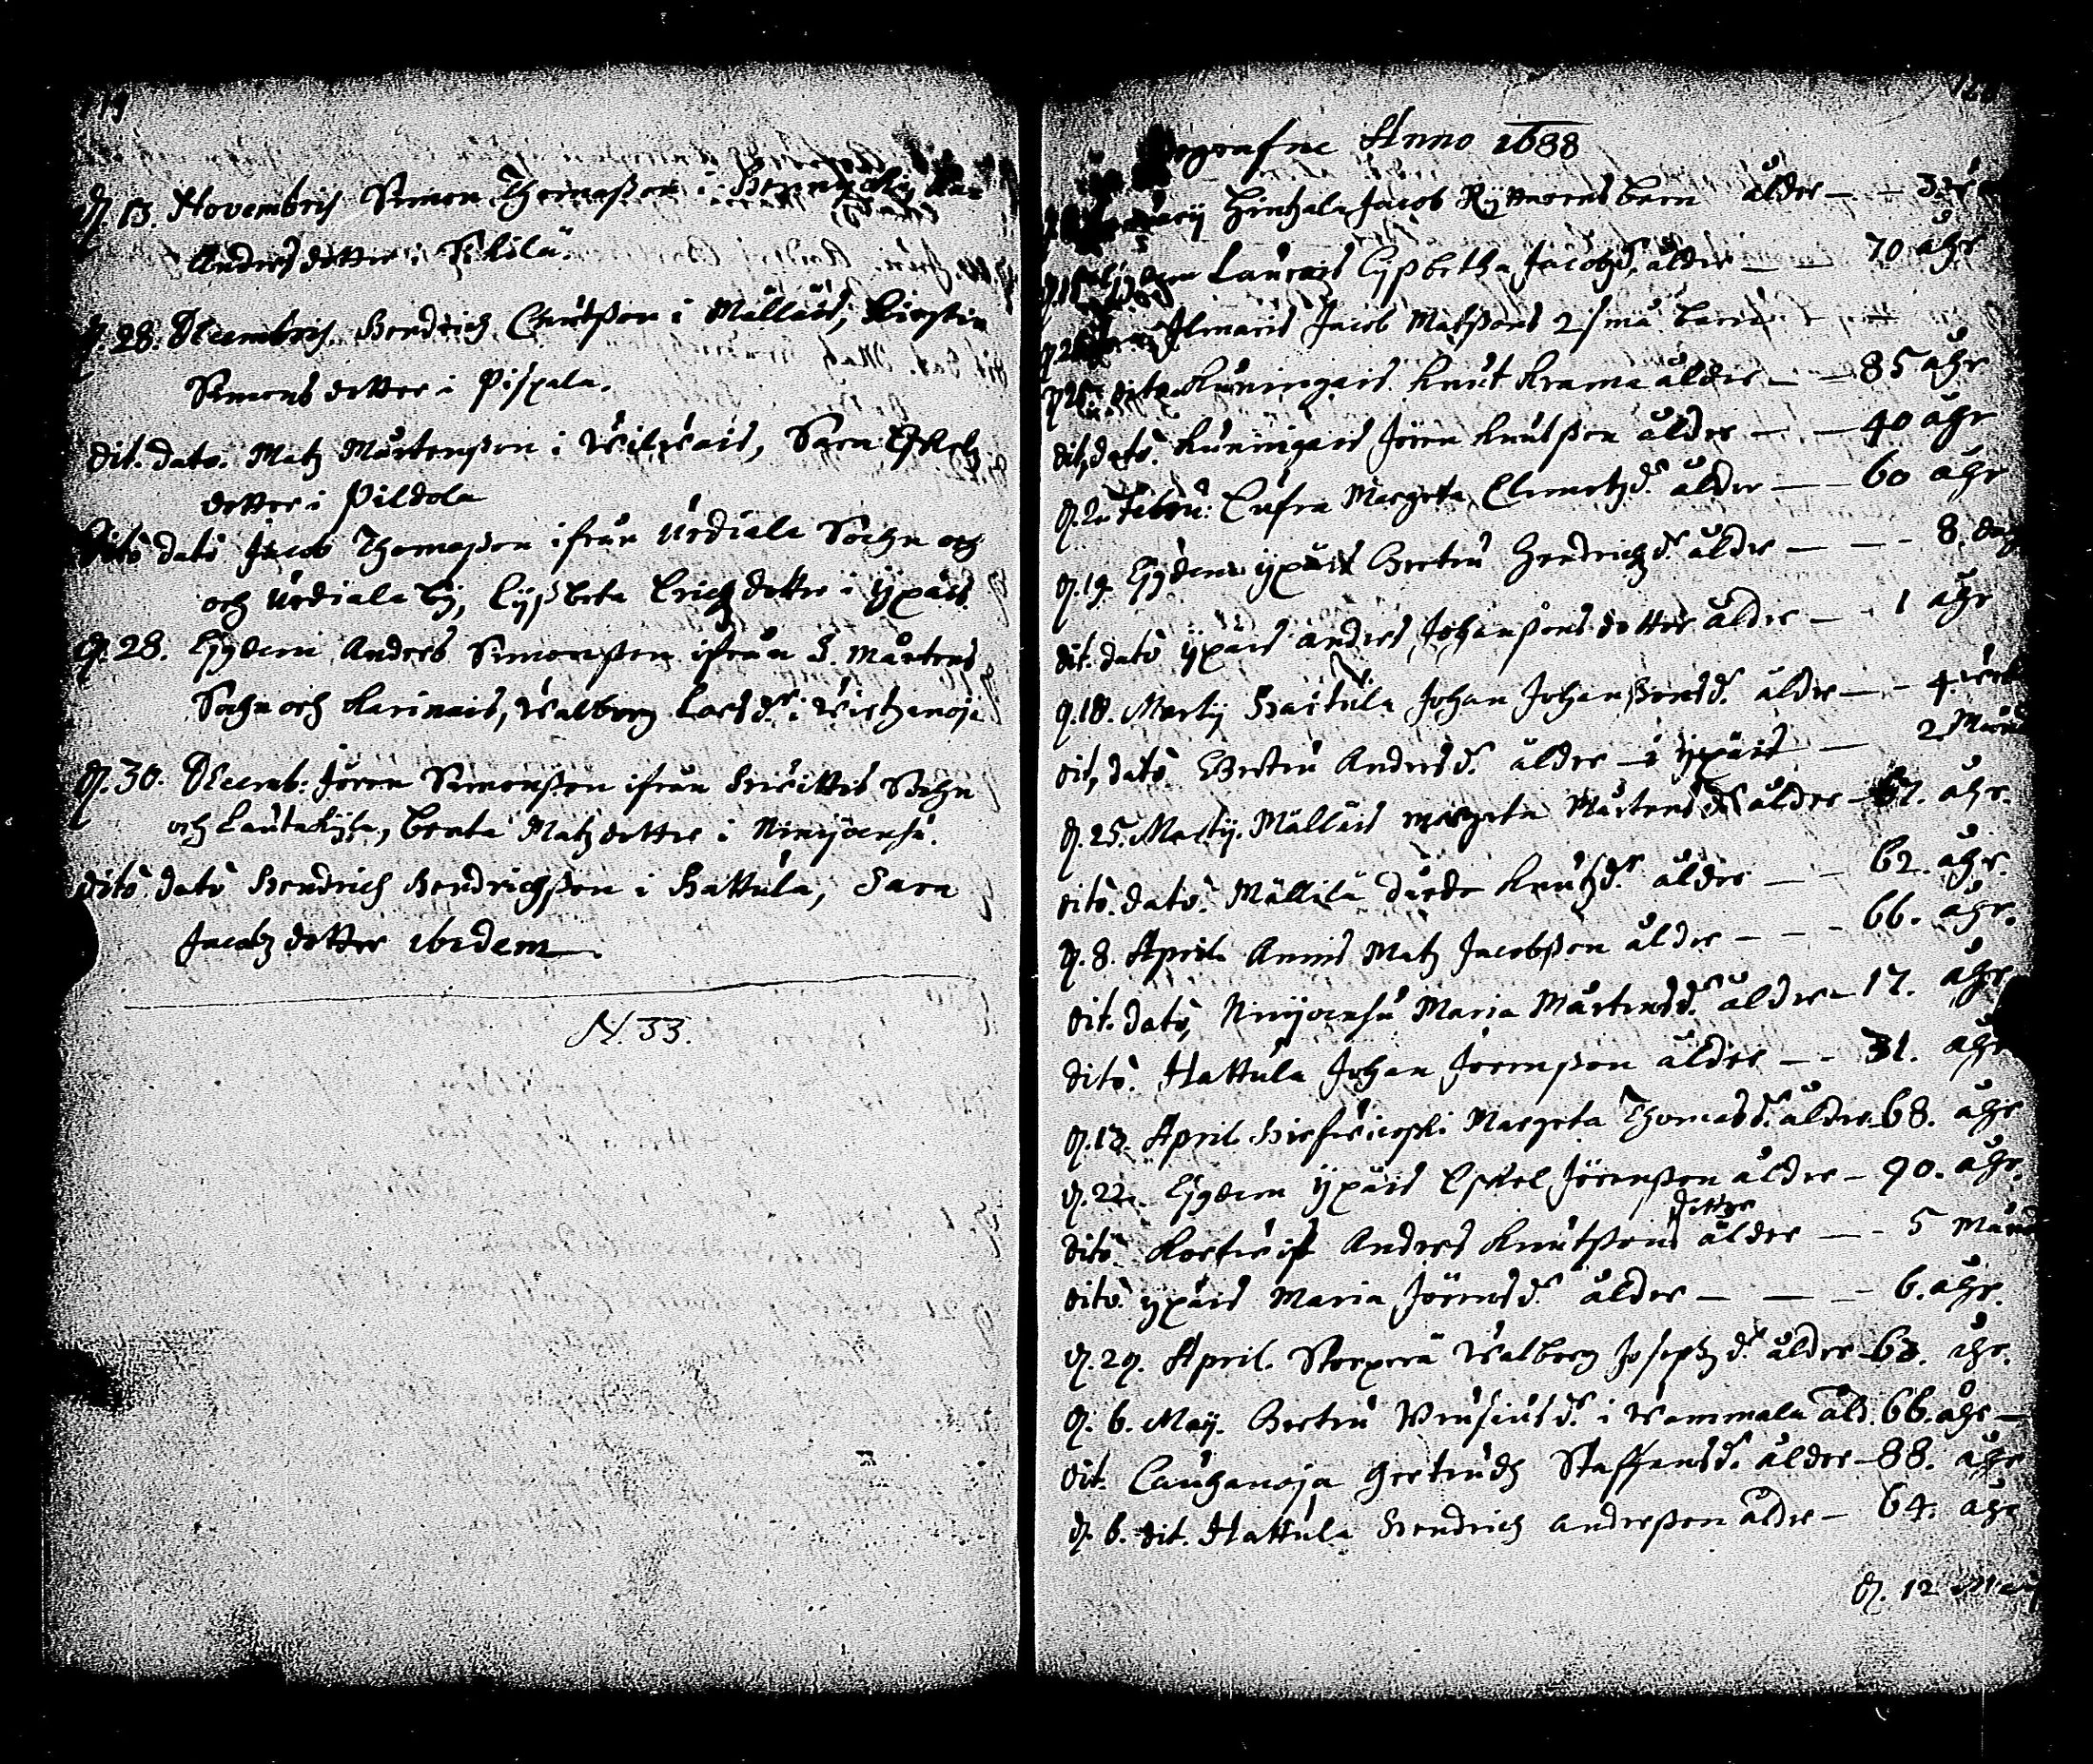 119
D. 13. Novembris Simon Thomaßon i
Anders dotter i Sikilä.
D. 28. Decembris. Hendrich Cnutßon i Mälläis, Kirstin
Simons dotter i Pispala.
Dit. dato. Matz Mårtenßon i Wilwais, Sara Eskels
dotter i Pildola
Dito dato Jacob Thomaßon ifrån Urdiala Sochn och
och Urdiala by, Lyßbeta Erichs dotter i Ypäis.
D. 28. Ejusdem Anders Simonßon ifrån S. Mårtens
Sochn och Karinais, Walborg Larsd. i Wirtzanoja
D. 30. Decemb: Jören Simonßon ifrån Sochn
och Lautakyla, Berta Matz dotter i Ninijoensu.
Dito dato Hendrich Hendrichßon i Hattula, Sara
Jacobz dotter ibidem.
N. 33.
Begrafne Anno 1688
Hintzala Jacob Ryttarens barn ålder — 3
D. 15 Laurais Lyßbetha Jacobzd. ålder — 70 åhr
Ilmaris Jacob Matßons 2 små barn
D. 25 dito Kuningais Knut Krama ålder — 85 åhr
dit, dato. Kuningais Jören Knutßon ålder — 40 åhr
D. 2. Febru: Margeta Clemetzd. ålder — 60 åhr
D. 19. Ejusdem Ypäis Bertru Hendrichzd. ålder — 8. dag
dit. dato Ypäis Anders Johanßons dotter ålder — 1 åhr
D. 18. Martij Hattula Johan Johanßons d. ålder — 4
dit, dato Bertru Andersd. ålder — i Ypäis — 2 Mån
D. 25. Martij. Mälläis Margeta Mårtensd. ålder — 67. åhr.
dito. dato. Mällilä Knutzd. ålder — 62. åhr.
D. 8. April Annis Matz Jacobßon ålder — 66. åhr.
dit. dato, Ninijoensu Maria Mårtensd. ålder — 17. åhr
dito. Hattula Johan Jörenßon ålder — 31. åhr
D. 13. April Hirfwikoski Margeta Thomasd. ålder 68. åhr
D. 22. Ejusdem Ypäis Eskel Jörenßon ålder — 90. åhr.
dotter
dito Anders Knutßons ålder — 5 Mån
dito Ypäis Maria Jörensd. ålder — 6. åhr.
D. 29. April. Walborg Josephzd. ålder 63. åhr.
D. 6. Maij. Bertru d. i Wammala åld. 66. åhr —
dit. Lauhanoja Gertrudh Staffansd. ålder — 88. åhr
D. 6. dit. Hattula Hendrich Anderßon ålder — 64. åhr
D. 12 Maij